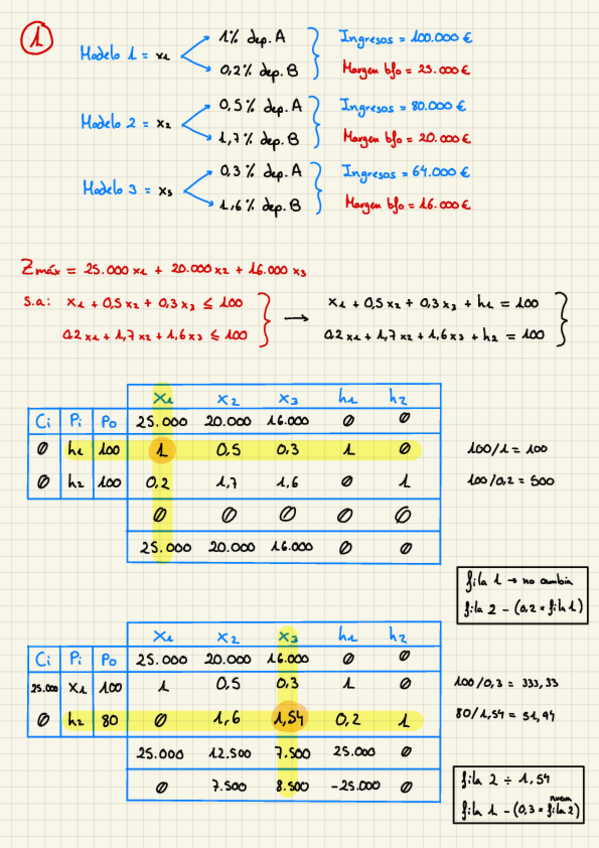 1
1% dep. A
Ingresos = 100.000 €
Modelo 1 = x1
0,2% dep. B
Margen bfo = 25.000 €
0,5% dep. A
Ingresos = 80.000 €
Modelo 2 = x2
1,7% dep. B
Margen bfo = 20.000 €
0,3% dep. A
Ingresos = 64.000 €
Modelo 3 = x3
1,6% dep. B
Margen bfo = 16.000 €
Zmáx = 25.000 x1 + 20.000 x2 + 16.000 x3
s.a: x1 + 0,5 x2 + 0,3 x3 ≤ 100 → x1 + 0,5 x2 + 0,3 x3 + h1 = 100
0,2 x1 + 1,7 x2 + 1,6 x3 ≤ 100 0,2 x1 + 1,7 x2 + 1,6 x3 + h2 = 100
x1 x2 x3 h1 h2
Ci Pi Po 25.000 20.000 16.000 0 0
0 h1 100 1 0,5 0,3 1 0 100/1 = 100
0 h2 100 0,2 1,7 1,6 0 1 100/0,2 = 500
0 0 0 0 0
25.000 20.000 16.000 0 0
fila 1 → no cambia
fila 2 - (0,2 * fila 1)
x1 x2 x3 h1 h2
Ci Pi Po 25.000 20.000 16.000 0 0
25.000 x1 100 1 0,5 0,3 1 0 100/0,3 = 333,33
0 h2 80 0 1,6 1,54 0,2 1 80/1,54 = 51,94
25.000 12.500 7.500 25.000 0
0 7.500 8.500 -25.000 0
fila 2 ÷ 1,54
nueva
fila 1 - (0,3 * fila 2)